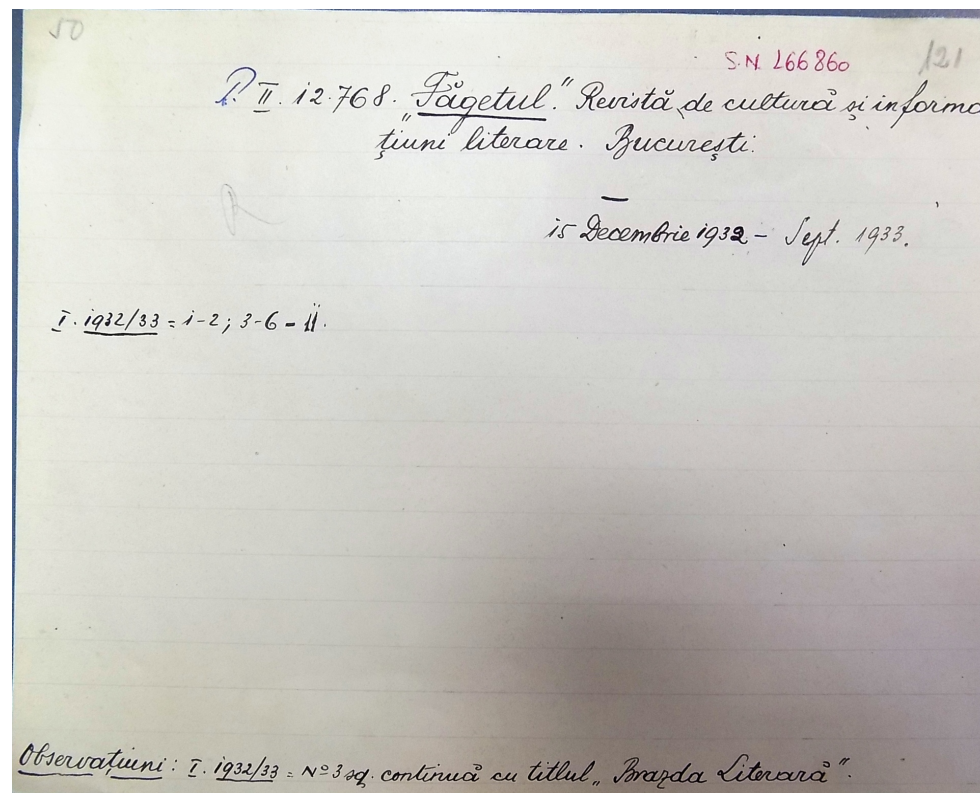 50
S.N. 266860
121
P. II. 12.768. „Făgetul.” Revistă de cultură și informa
țiuni literare. București.
15 Decembrie 1932 – Sept. 1933.
I. 1932/33 = 1-2; 3-6 – 11.
Observațiuni: I. 1932/33 = Nº 3 sq. continuă cu titlul „Brazda Literară”.